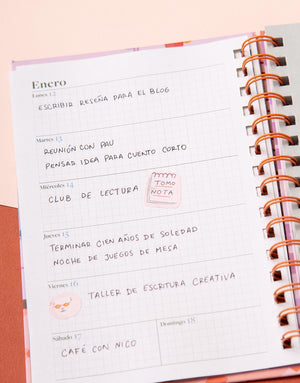 Enero
Lunes 12
ESCRIBIR RESEÑA PARA EL BLOG
Martes 13
REUNIÓN CON PAU
PENSAR IDEA PARA CUENTO CORTO
Miércoles 14
CLUB DE LECTURA
TOMO
NOTA
Jueves 15
TERMINAR CIEN AÑOS DE SOLEDAD
NOCHE DE JUEGOS DE MESA
Viernes 16
TALLER DE ESCRITURA CREATIVA
Sábado 17
CAFÉ CON NICO
Domingo 18